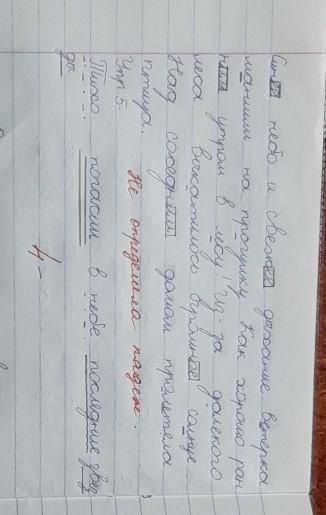 Синее небо и свежее дыхание ветерка
манили на прогулку. Как хорошо ран
ним утром в лесу! Из-за далекого
леса выкатилось огромное солнце.
Над соседним домом пролетела
птица. Не определила падеж.
Упр.5.
Тихо погасли в небе последние звёз
ды.
4-